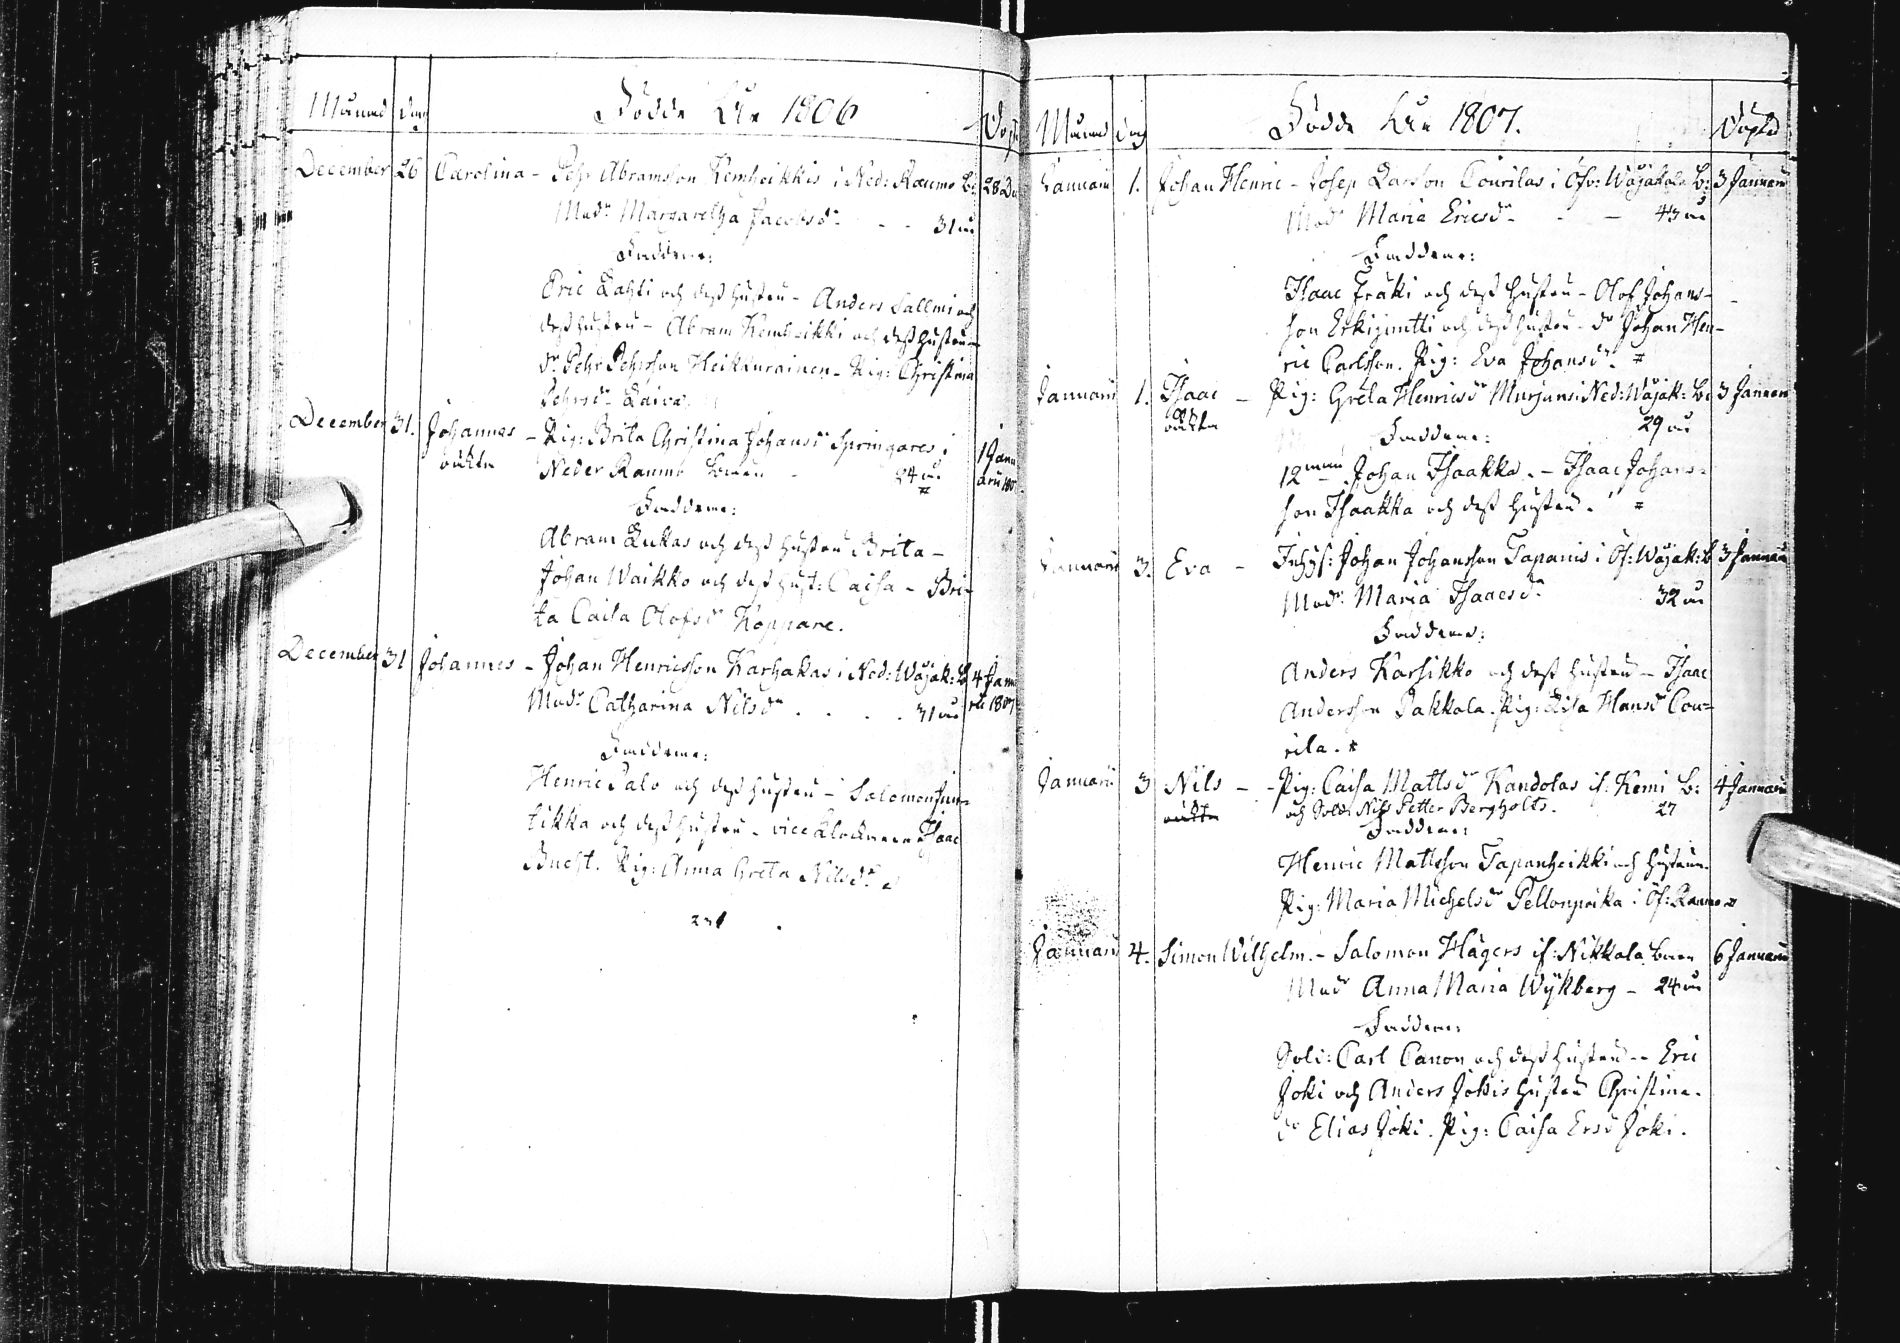 Månad Dag Födde År 1806 Döpt
December 26 Carolina - Pehr Abramsson Kemheikkis i Ned: Raumo By 28 De
Mod: Margaretha Jacobsdr - - 31 år
Faddrar:
Eric Lahti och dess hustru - Anders Sallmi och
dess hustru - Abram Kemheikki och dess hustru
dr Pehr Pehrsson Heikkurainen - Pig: Christina
Pehrsdr Laiva.
December 31. Johannes - Pig: Brita Christina Johansdr Springares i 1 Janu
oäkta Neder Raumo byen - 24 år arii 180
Faddrar:
Abram Lukas och dess hustru Brita -
Johan Waikko och dess hust: Caisa - Bri-
ta Caisa Olofsdr Koppare.
December 31 Johannes - Johan Henricsson Karhakas i Ned: Wojak: B 4 Janu
Mod: Catharina Nilsdr . . . . 31 år rii 1807
Faddrar:
Henric Palo och dess hustru - Salomon
tikka och dess hustru - vice Klockaren Isaac
Bucht. Pig: Anna Greta Nilsdr
231
Månad Dag Födde År 1807. Döpte
Januarii 1. Johan Henric - Josep Larsson Courilas i Öfv: Wojakala B: 3 Januarii
Mod: Maria Ericsdr - - - 43 år
Faddrar:
Isaac Fräki och dess hustru - Olof Johans-
son Erkigumtti och dess hustru - dr Johan Hen-
ric Carlsson. Pig: Eva Johansdr.
Januarii 1. Isaac - Pig: Greta Henricsdr Murjuns i Ned: Wojak: By 3 Januarii
oäkta 29 år
Faddrar:
12man Johan Isaakka. - Isaac Johans-
son Isaakka och dess hustru.
Januarii 3. Eva - Inhys: Johan Johansson Tapanis i Öf: Wojak: B 3 Januarii
Mod: Maria Isaacsdr 32 år
Faddrar:
Anders Karsikko och dess hustru - Isaac
Andersson Pakkala. Pig: Lisa Hansdr Cou-
rila.
Januarii 3 Nils - - Pig: Caisa Mattsdr Kandolas if: Kemi B: 4 Januarii
oäkta och Sold: Nils Petter Bergholts. 27
Faddrar:
Henric Mattsson Tapanheikki och hustrun
Pig: Maria Michelsdr Pellonpoika i Öf: Raumo
Januarii 4. Simon Wilhelm. - Salomon Hägers if: Nikkala byen 6 Januarii
Mod: Anna Maria Wykberg - 24 år
Faddrar:
Sold: Carl Canon och dess hustru - - Eric
Joki och Anders Jokis hustru Christina.
dr Elias Joki. Pig: Caisa Ersdr Joki.